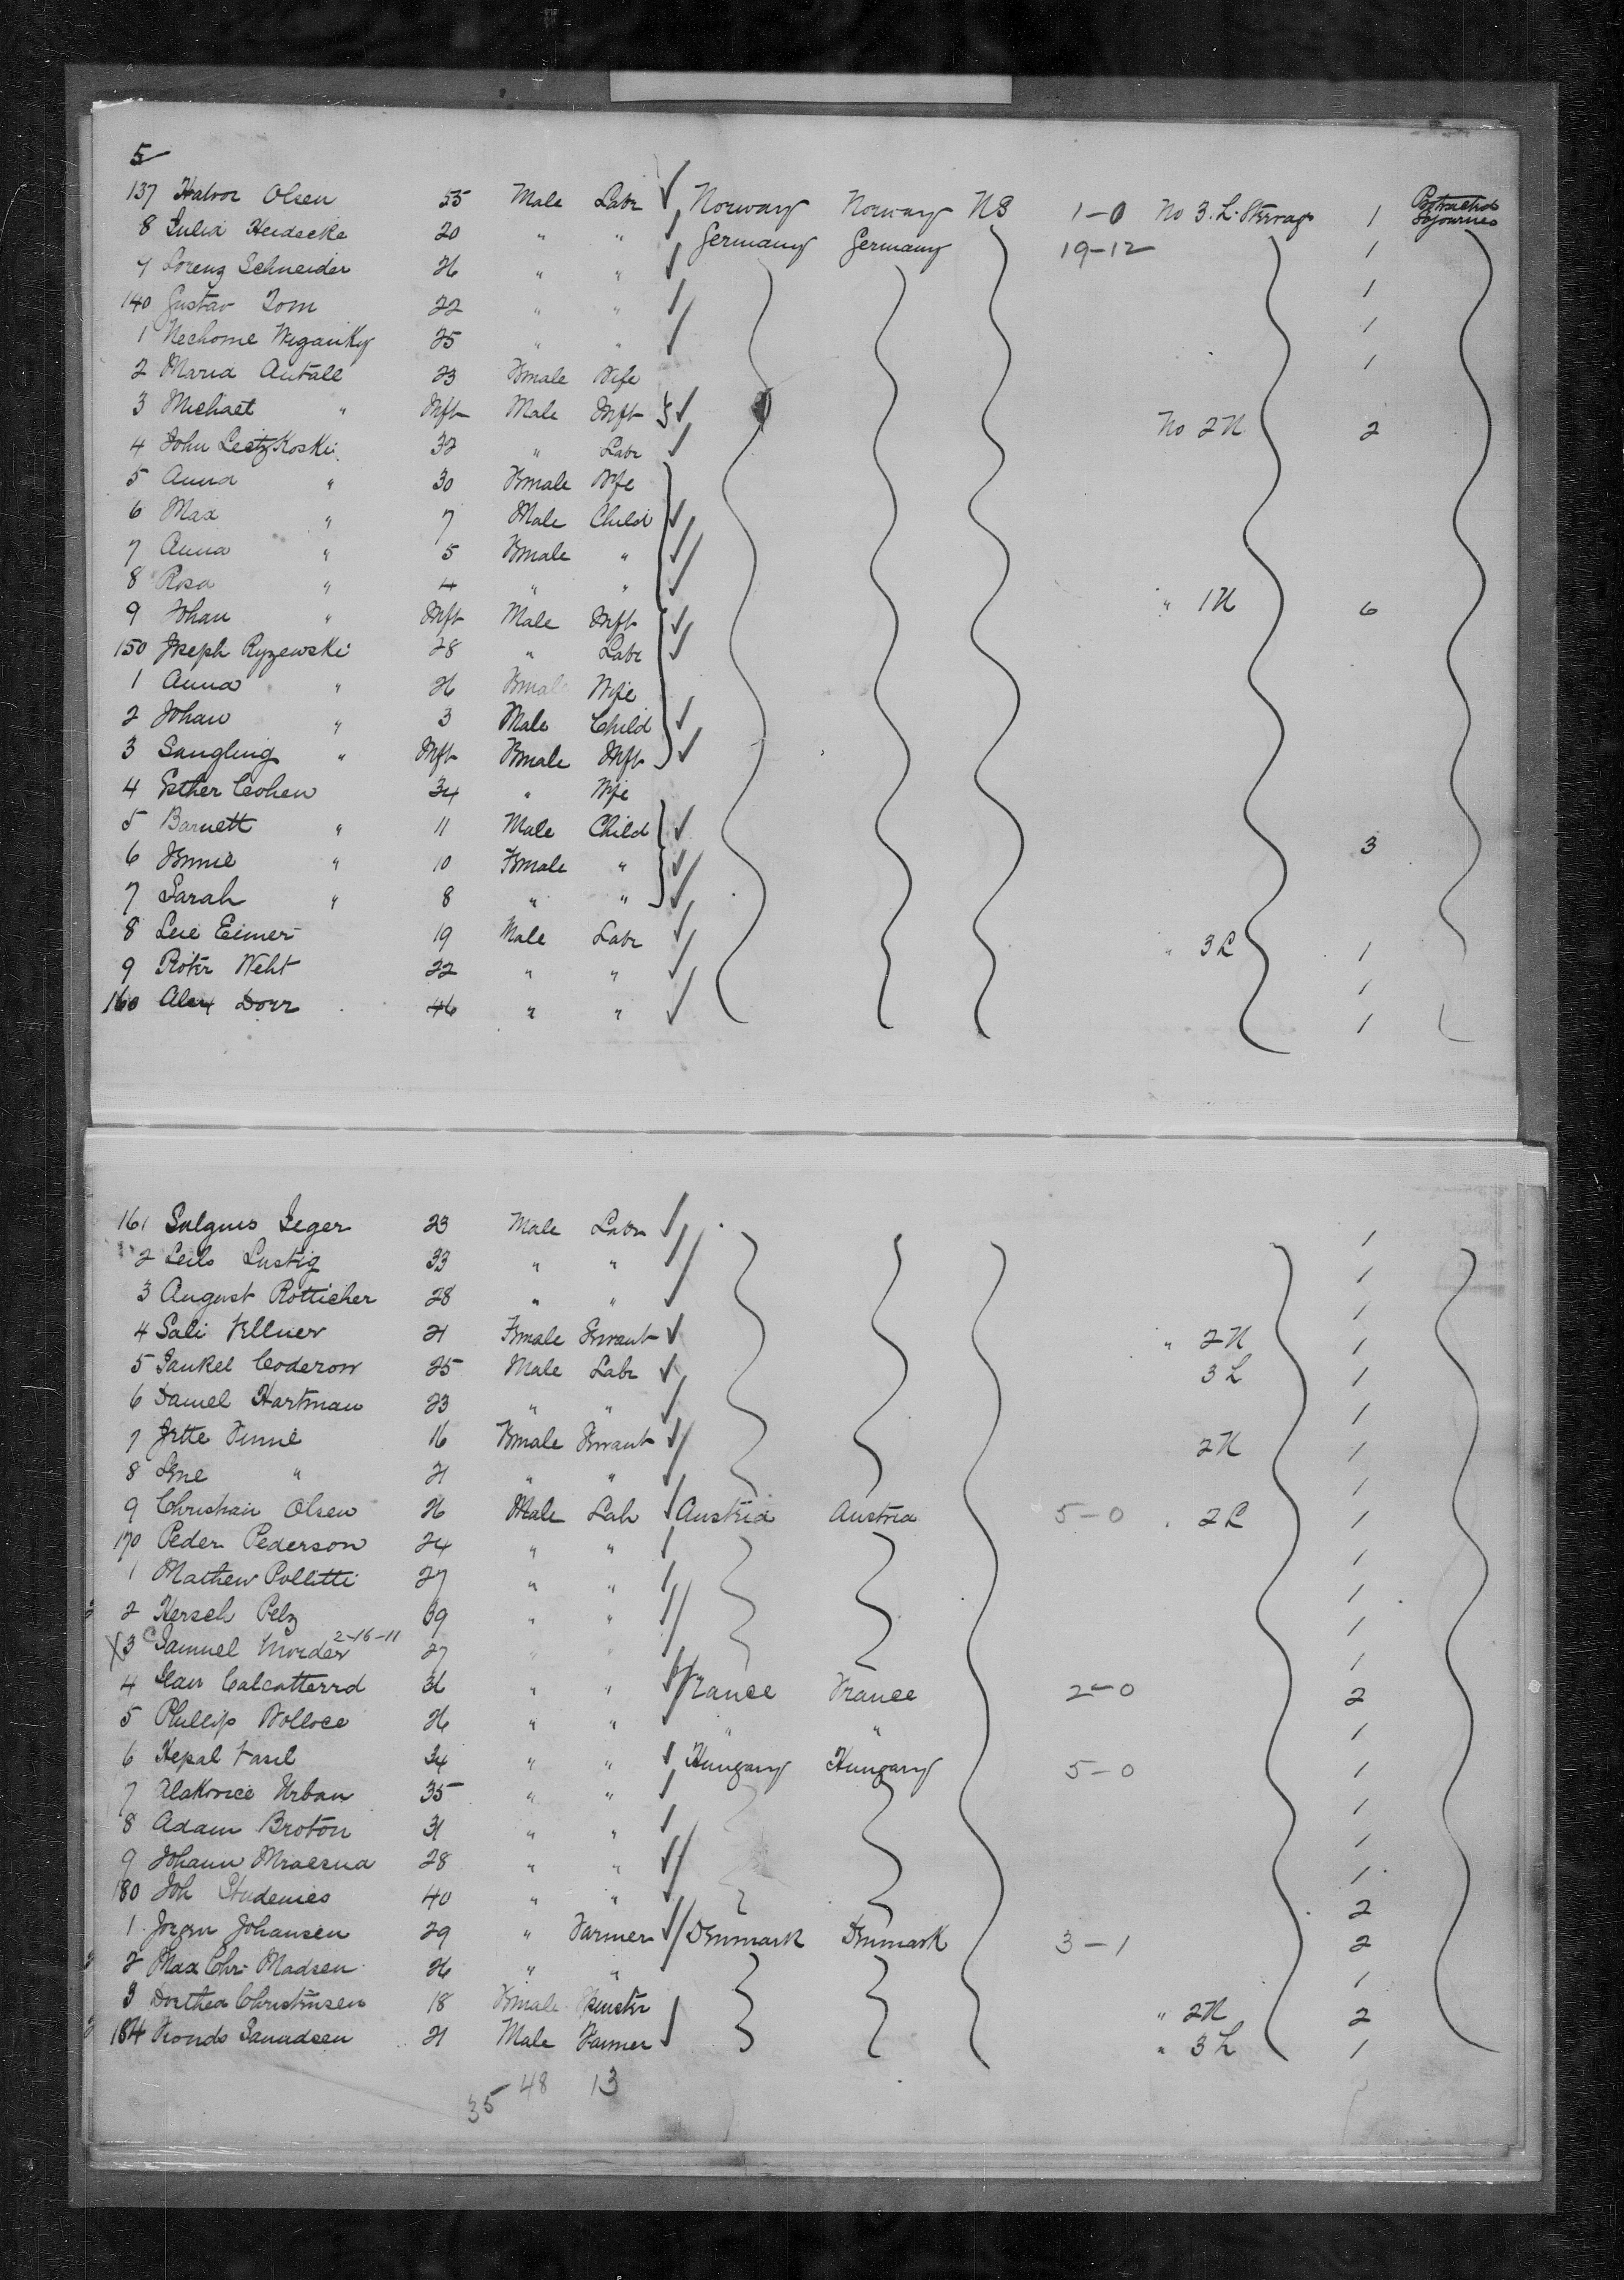 5
137 Halvor Olsen 55 Male Labr Norway Norway N8 1-0 No 3. L. Sterrage 1 Protracted Sojourner
8 Julia Heidecke 20 " " Germany Germany 19-12 1
9 Lorenz Schneider 26 " " 1
140 Gustav Tom 22 " " 1
1 Nechome 25 " " 1
2 Maria Antall 23 Female Wife
3 Michael " Inft Male Inft No 2N 2
4 John Leitzkoski 32 " Labr
5 Anna " 30 Female Wife
6 Max " 7 Male Child
7 Anna " 5 Female "
8 Rosa " 4 " "
9 Johan " Inft Male Inft " 1N 6
150 Joseph Ryzewski 28 " Labr
1 Anna " 26 Female Wife
2 Johan " 3 Male Child
3 Saugling " Inft Female Inft
4 Esther Cohen 34 " Wife
5 Barnett " 11 Male Child 3
6 Jennie " 10 Female "
7 Sarah " 8 " "
8 Leie Eimer 19 Male Labr " 3L 1
9 Weht 22 " " 1
160 Alex Dorr 46 " " 1
161 Seger 23 Male Labr 1
2 Lustig 33 " " 1
3 August Rotticher 28 " " 1
4 Sali 21 Female Servant " 2N 1
5 Jankel Coderow 25 Male Labr 3L 1
6 Daniel Hartman 23 " " 1
7 Jette 16 Female Servant 2N 1
8 Lene " 21 " " 1
9 Christian Olsen 26 Male Lab Austria Austria 5-0 " 2L 1
170 Peder Pederson 24 " " 1
1 Mathew Polletti 27 " " 1
2 Hersch Pelz 39 " " 1
X3 C Samuel Morder 2-16-11 27 " " 1
4 Jean Calcatterrd 36 " " France France 2-0 2
5 Phillip Wolloce 26 " " " " 1
6 Hepal Vasil 34 " " Hungary Hungary 5-0 1
7 Alakovice Urban 35 " " 1
8 Adam Broton 31 " " 1
9 Johann 28 " " 1
180 Joh Studenies 40 " " 2
1 Jorgen Johansen 29 " Farmer Denmark Denmark 3-1 2
2 Max Chr Madsen 26 " " 1
3 Dorthea Christensen 18 Female " 2N 2
184 21 Male Farmer " 3L 1
35 48 13